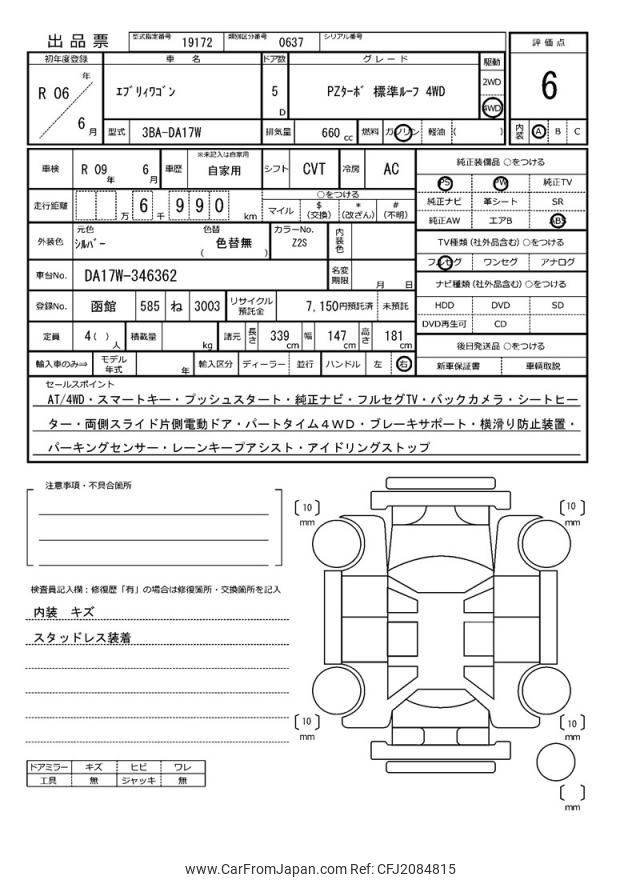 出品票 型式指定番号 19172 類別区分番号 0637 シリアル番号
初年度登録 車 名 ドア数 グレード 駆動 評価点
R 06 年 エブリィワゴン 5 D PZターボ 標準ルーフ 4WD 2WD 6
6 月 4WD
型式 3BA-DA17W 排気量 660 cc 燃料 ガソリン 軽油 ( ) 内装 A B C
車検 R 09 年 6 月 車歴 ※未記入は自家用 自家用 シフト CVT 冷房 AC 純正装備品 ○をつける
PS PW 純正TV
走行距離 万 6 千 9 9 0 km ○をつける 純正ナビ 革シート SR
マイル $ (交換) * (改ざん) # (不明) 純正AW エアB ABS
外装色 元色 シルバー 色替 ( 色替無 ) カラーNo. Z2S 内装色 TV種類 (社外品含む) ○をつける
フルセグ ワンセグ アナログ
車台No. DA17W-346362 名変期限 月 日 ナビ種類 (社外品含む) ○をつける
登録No. 函館 585 ね 3003 リサイクル預託金 7,150円預託済 未預託 HDD DVD SD
DVD再生可 CD
定員 4 ( ) 人 積載量 kg 諸元 長さ 339 cm 幅 147 cm 高さ 181 cm 後日発送品 ○をつける
輸入車のみ⇒ モデル年式 年 輸入区分 ディーラー 並行 ハンドル 左 右 新車保証書 車輌取説
セールスポイント
AT/4WD・スマートキー・プッシュスタート・純正ナビ・フルセグTV・バックカメラ・シートヒー
ター・両側スライド片側電動ドア・パートタイム4WD・ブレーキサポート・横滑り防止装置・
パーキングセンサー・レーンキープアシスト・アイドリングストップ
注意事項・不具合箇所
10 mm
10 mm
検査員記入欄：修復歴「有」の場合は修復箇所・交換箇所を記入
内装 キズ
スタッドレス装着
10 mm
10 mm
ドアミラー キズ ヒビ ワレ
工具 無 ジャッキ 無
mm
www.CarFromJapan.com Ref: CFJ2084815